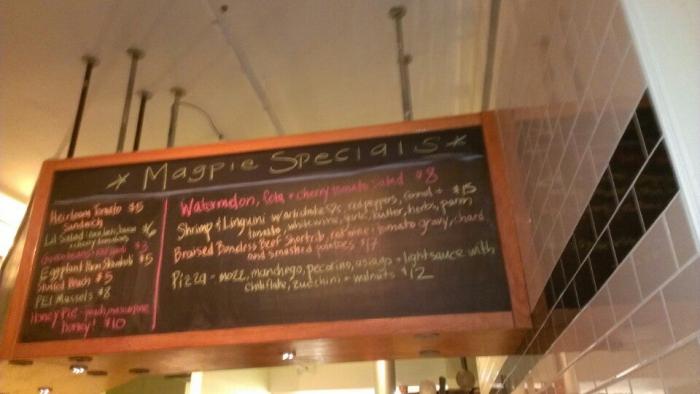 * Magpie Specials *
Heirloom Tomato $5
Sandwich
Lil Salad - bacon
cherry tomatoes
$3
Eggplant Parm $5
Stuffed Peach $5
PEI Mussels $8
Honey Pie - peach, mascarpone
honey! $10
Watermelon, feta + cherry tomato salad $8
Shrimp & Linguini w/ artichoke, red pepper, corn + $15
tomato, white wine, garlic, butter, herbs, parm
Braised Boneless Beef Shortrib, red wine + tomato gravy, chard
and smashed potatoes $17
Pizza - mozz, manchego, pecorino, asiago + light sauce with
chili flake, zucchini + walnuts $12